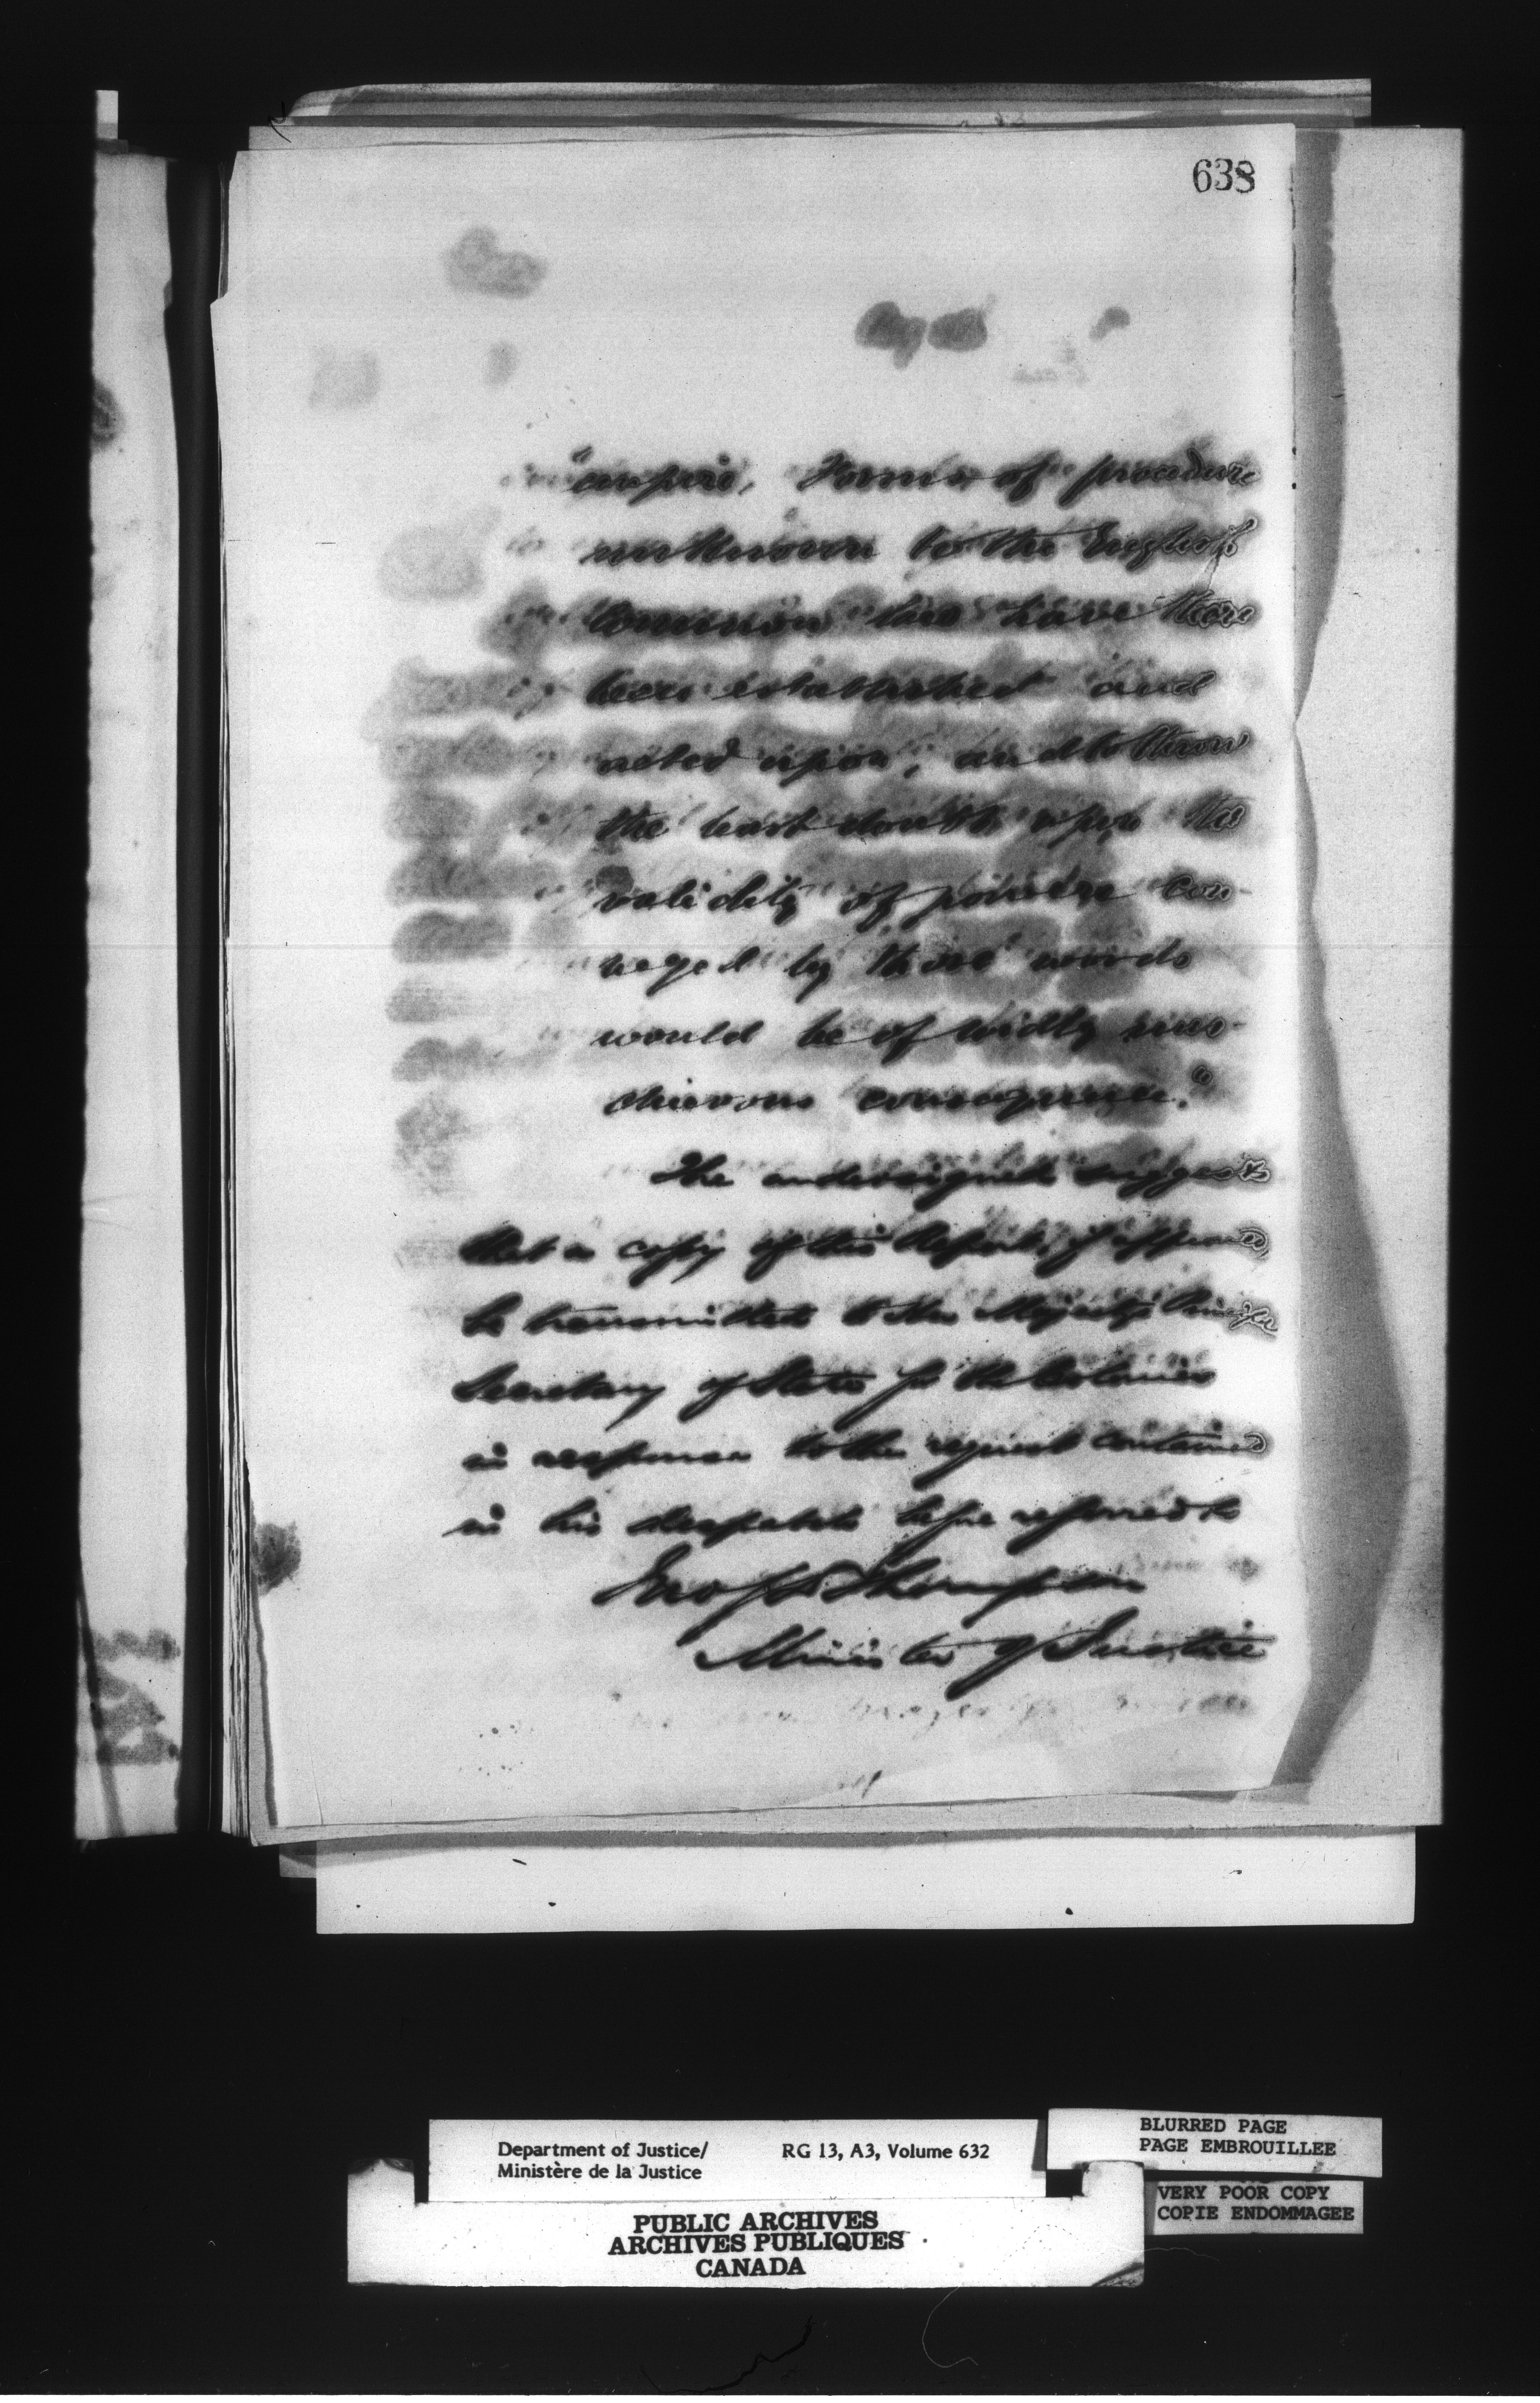 638
"empire, Forms of procedure
unknown to the English
Common law have there
been established and
acted upon; and to throw
the least doubt upon the
validity of powers con-
veyed by those words
would be of widely mis-
chievous consequence."
The undersigned suggests
that a copy of this Report, if approved,
be transmitted to Her Majesty's
Secretary of State for the Colonies
in response to the request contained
in his despatch before referred to
Jno S D Thompson
Minister of Justice
Department of Justice/ RG 13, A3, Volume 632
Ministère de la Justice
BLURRED PAGE
PAGE EMBROUILLEE
VERY POOR COPY
COPIE ENDOMMAGEE
PUBLIC ARCHIVES
ARCHIVES PUBLIQUES
CANADA